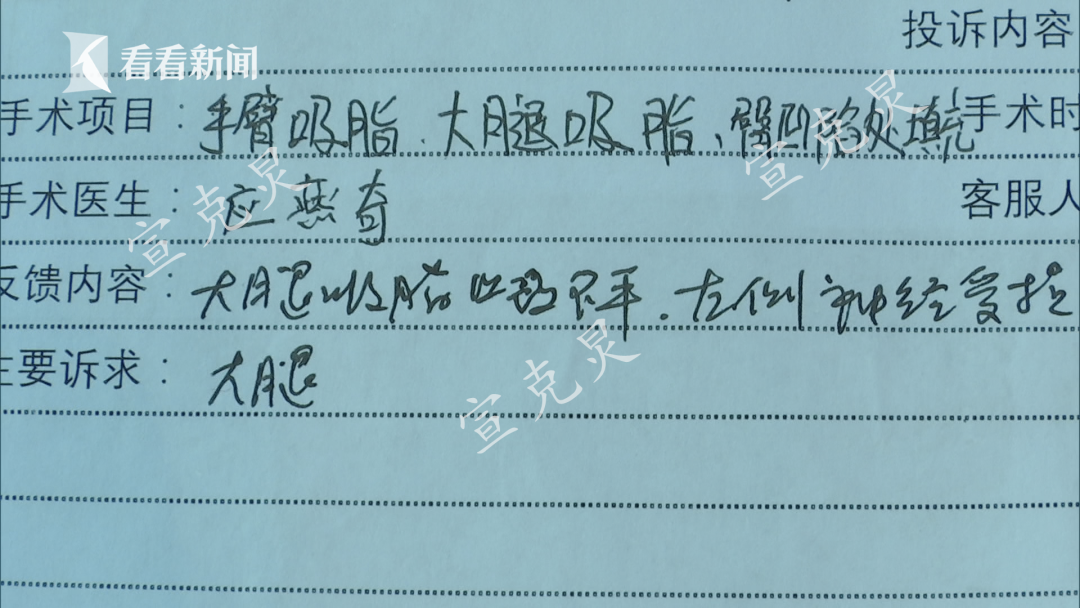 投诉内容
看看新闻
手术项目：手臂吸脂、大腿吸脂、臀凹陷处填充 手术时
手术医生：应燕奇 客服人
反馈内容：大腿吸脂凹凸不平．左侧神经受损
主要诉求：大腿
宣克炅
宣克炅
宣克炅